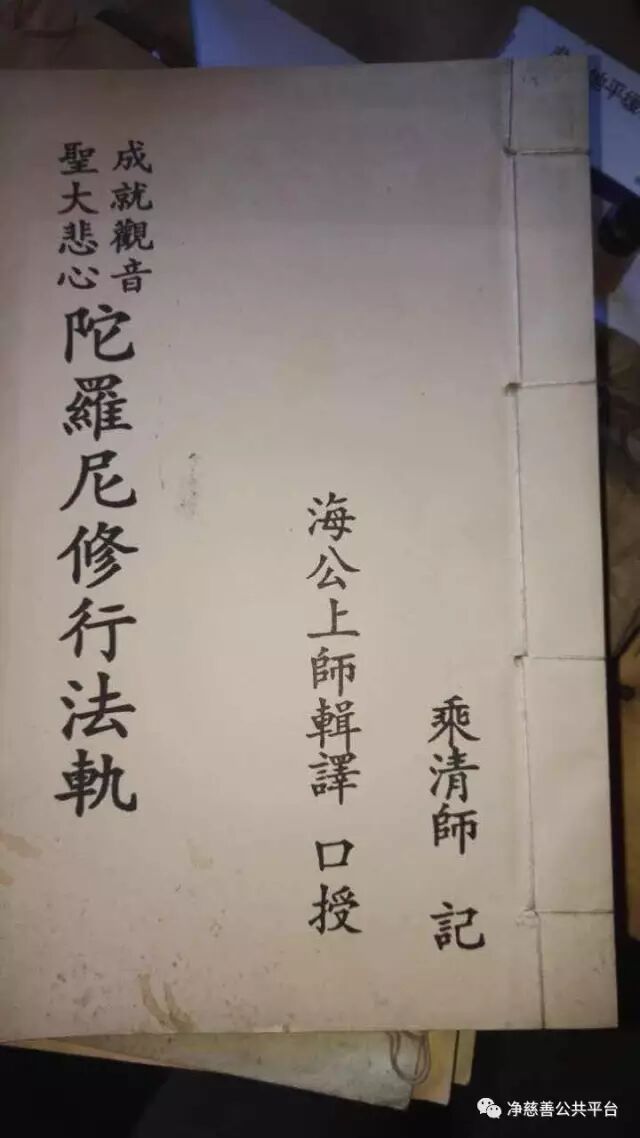 乘清師 記
海公上師輯譯 口授
成就觀音
聖大悲心
陀羅尼修行法軌
净慈善公共平台